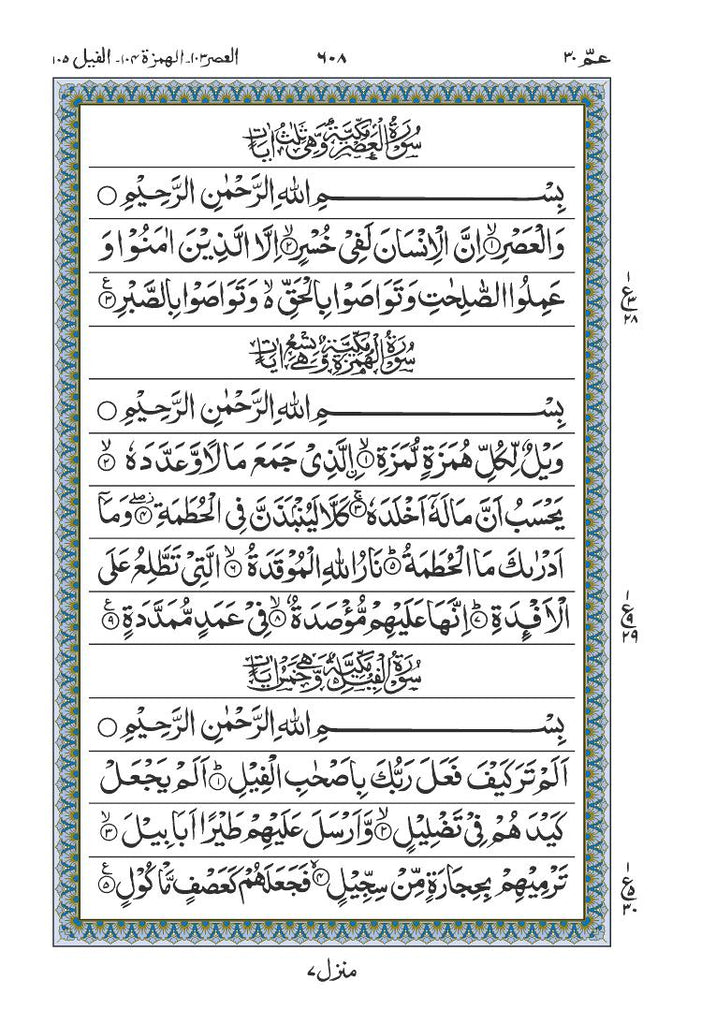 عمّ ٣٠ ٦٠٨ العصر ١٠٣۔ الهمزة ١٠٤۔ الفيل ١٠٥
سُوۡرَةُ الۡعَصۡرِ مَكِّيَّةٌ وَّهِىَ ثَلٰثُ اٰيَاتٍ
بِسۡمِ اللهِ الرَّحۡمٰنِ الرَّحِيۡمِ ○
وَالۡعَصۡرِۙ‏﴿۱﴾ اِنَّ الۡاِنۡسَانَ لَفِىۡ خُسۡرٍۙ‏﴿۲﴾ اِلَّا الَّذِيۡنَ اٰمَنُوۡا وَ
عَمِلُوا الصّٰلِحٰتِ وَتَوَاصَوۡا بِالۡحَقِّ ۙ وَتَوَاصَوۡا بِالصَّبۡرِ ﴿۳﴾ ع
١ ع ٣ ٢٨
سُوۡرَةُ الۡهُمَزَةِ مَكِّيَّةٌ وَّهِىَ تِسۡعُ اٰيَاتٍ
بِسۡمِ اللهِ الرَّحۡمٰنِ الرَّحِيۡمِ ○
وَيۡلٌ لِّكُلِّ هُمَزَةٍ لُّمَزَةِ ۙ‏﴿۱﴾ اۨلَّذِىۡ جَمَعَ مَالًا وَّعَدَّدَهٗ ۙ‏﴿۲﴾
يَحۡسَبُ اَنَّ مَالَهٗۤ اَخۡلَدَهٗ‌ ۚ‏﴿۳﴾ كَلَّا‌ لَيُنۡۢبَذَنَّ فِى الۡحُطَمَةِ ۖ‏﴿۴﴾ وَمَاۤ
اَدۡرٰٮكَ مَا الۡحُطَمَةُ ؕ‏﴿۵﴾ نَارُ اللهِ الۡمُوۡقَدَةُ ۙ‏﴿۶﴾ الَّتِىۡ تَطَّلِعُ عَلَى
الۡاَفۡـِٕدَةِ ؕ‏﴿۷﴾ اِنَّهَا عَلَيۡهِمۡ مُّؤۡصَدَةٌ ۙ‏﴿۸﴾ فِىۡ عَمَدٍ مُّمَدَّدَةٍ ﴿۹﴾ ع
١ ع ٩ ٢٩
سُوۡرَةُ الۡفِيۡلِ مَكِّيَّةٌ وَّهِىَ خَمۡسُ اٰيَاتٍ
بِسۡمِ اللهِ الرَّحۡمٰنِ الرَّحِيۡمِ ○
اَلَمۡ تَرَ كَيۡفَ فَعَلَ رَبُّكَ بِاَصۡحٰبِ الۡفِيۡلِؕ‏﴿۱﴾ اَلَمۡ يَجۡعَلۡ
كَيۡدَهُمۡ فِىۡ تَضۡلِيۡلٍۙ‏﴿۲﴾ وَّاَرۡسَلَ عَلَيۡهِمۡ طَيۡرًا اَبَابِيۡلَۙ‏﴿۳﴾
تَرۡمِيۡهِمۡ بِحِجَارَةٍ مِّنۡ سِجِّيۡلٍۙ‏﴿۴﴾ فَجَعَلَهُمۡ كَعَصۡفٍ مَّاۡكُوۡلٍ ﴿۵﴾ ع
١ ع ٥ ٣٠
منزل ٧